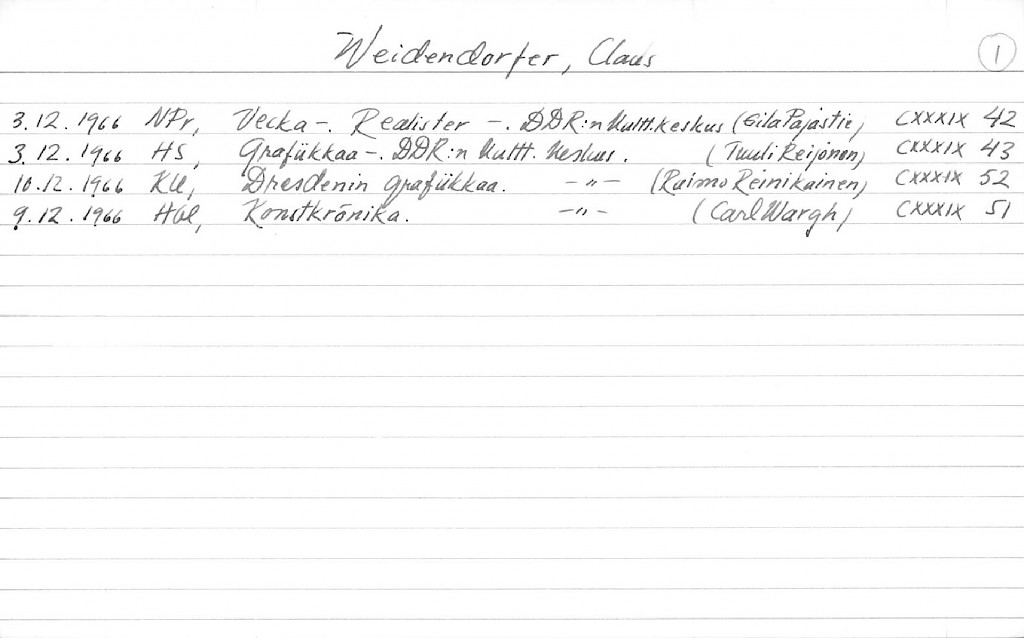 Weidendorfer, Claus 1
3.12.1966 NPr, Vecka -. Realister -. DDR:n Kultt.keskus (Eila Pajastie) CXXXIX 42
3.12.1966 HS, Grafiikkaa -. DDR:n Kultt. Keskus. (Tuuli Reijonen) CXXXIX 43
10.12.1966 KU, Dresdenin grafiikkaa. -"- (Raimo Reinikainen) CXXXIX 52
9.12.1966 Hbl, Konstkrönika. -"- (Carl Wargh) CXXXIX 51